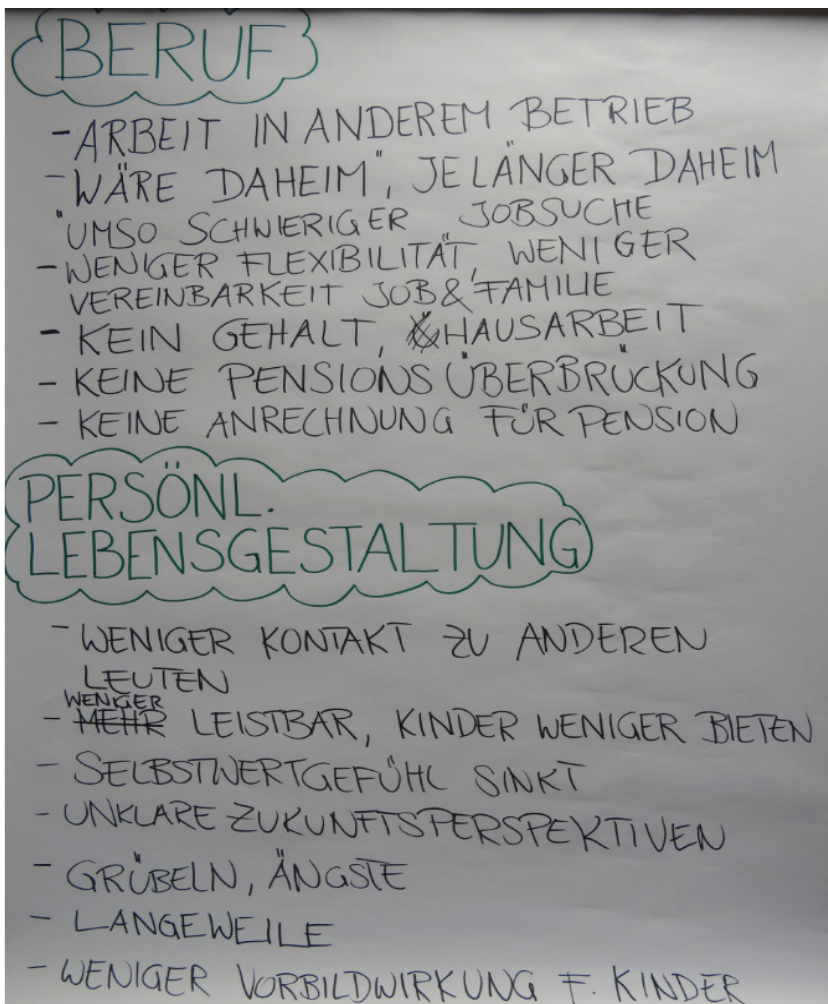 BERUF
- ARBEIT IN ANDEREM BETRIEB
- "WÄRE DAHEIM", JE LÄNGER DAHEIM
UMSO SCHWIERIGER JOBSUCHE
- WENIGER FLEXIBILITÄT, WENIGER
VEREINBARKEIT JOB & FAMILIE
- KEIN GEHALT, HAUSARBEIT
- KEINE PENSIONSÜBERBRÜCKUNG
- KEINE ANRECHNUNG FÜR PENSION
PERSÖNL.
LEBENSGESTALTUNG
- WENIGER KONTAKT ZU ANDEREN
LEUTEN
WENIGER
- MEHR LEISTBAR, KINDER WENIGER BIETEN
- SELBSTWERTGEFÜHL SINKT
- UNKLARE ZUKUNFTSPERSPEKTIVEN
- GRÜBELN, ÄNGSTE
- LANGEWEILE
- WENIGER VORBILDWIRKUNG F. KINDER